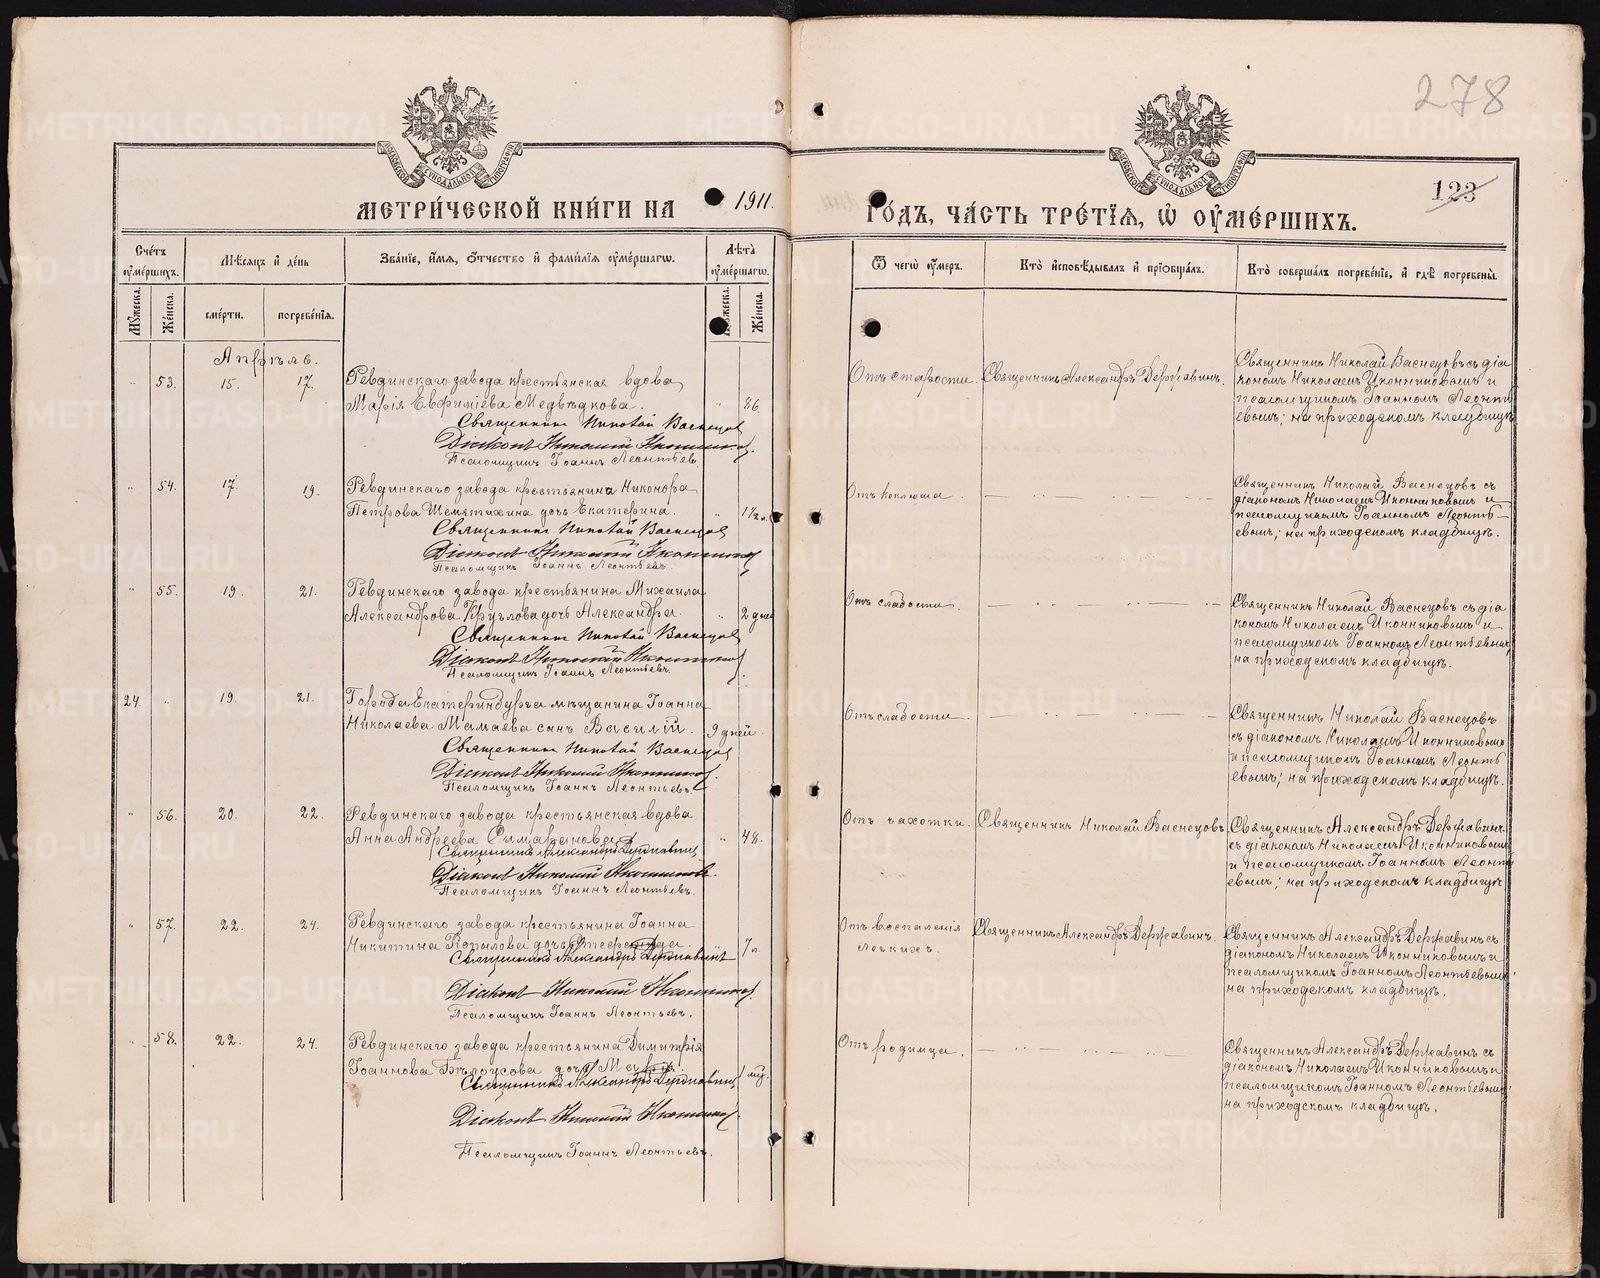 278
123
МЕТРИ́ЧЕСКОЙ КНИ́ГИ НА 1911. ГО́ДЪ, ЧА́СТЬ ТРЕ́ТЇѦ, Ѡ ОУ҆МЕ́РШИХЪ.
Сче́тъ оу҆ме́ршихъ.
Мѣ́сѧцъ и҆ де́нь
Зва́нїе, и҆́мѧ, ѻ҆́тчество и҆ фамилїѧ оу҆ме́ршагѡ.
Лѣ́та оу҆ме́ршагѡ.
Ѿ чегѡ̀ оу҆́меръ.
Кто̀ и҆сповѣ́дывалъ и҆ прїѡбща́лъ.
Кто̀ соверша́лъ погребе́нїе, и҆ гдѣ̀ погребены̀.
Мꙋ́жеска.
Же́нска.
сме́рти.
погребе́нїѧ.
Мꙋ́жеска.
Же́нска.
Апрѣль.
" 53. 15. 17.
Ревдинскаго завода крестьянская вдова
Марія Евфиміева Медвѣдкова.
" 86
Священникъ Николай Васнецовъ
Діаконъ Николай Иконниковъ
Псаломщикъ Іоаннъ Леонтьевъ
Отъ старости.
Священникъ Александръ Державинъ.
Священникъ Николай Васнецовъ съ діа
кономъ Николаемъ Иконниковымъ и
псаломщикомъ Іоанномъ Леонть
евымъ; на приходскомъ кладбищѣ
" 54. 17. 19.
Ревдинскаго завода крестьянина Никонора
Петрова Шемятихина дочь Екатерина.
" 1½ г.
Священникъ Николай Васнецовъ
Діаконъ Николай Иконниковъ
Псаломщикъ Іоаннъ Леонтьевъ.
Отъ коклюша.
Священникъ Николай Васнецовъ съ
діакономъ Николаемъ Иконниковымъ и
псаломщикомъ Іоанномъ Леонть-
евымъ; на приходскомъ кладбищѣ.
" 55. 19. 21.
Ревдинскаго завода крестьянина Михаила
Александрова Круглова дочь Александра.
" 2 дней
Священникъ Николай Васнецовъ
Діаконъ Николай Иконниковъ
Псаломщикъ Іоаннъ Леонтьевъ.
Отъ слабости.
Священникъ Николай Васнецовъ съ діа
кономъ Николаемъ Иконниковымъ и
псаломщикомъ Іоанномъ Леонтьевымъ;
на приходскомъ кладбищѣ.
24. " 19. 21.
Города Екатеринбурга мѣщанина Іоанна
Николаева Мамаева сынъ Василій.
9 дней.
Священникъ Николай Васнецовъ
Діаконъ Николай Иконниковъ
Псаломщикъ Іоаннъ Леонтьевъ.
Отъ слабости.
Священникъ Николай Васнецовъ
съ діакономъ Николаемъ Иконниковымъ
и псаломщикомъ Іоанномъ Леонть
евымъ; на приходскомъ кладбищѣ.
" 56. 20. 22.
Ревдинскаго завода крестьянская вдова
Анна Андреева
" 48.
Священникъ Александръ Державинъ
Діаконъ Николай Иконниковъ.
Псаломщикъ Іоаннъ Леонтьевъ.
Отъ чахотки.
Священникъ Николай Васнецовъ
Священникъ Александръ Державинъ
съ діакономъ Николаемъ Иконниковымъ
и псаломщикомъ Іоанномъ Леонть
евымъ; на приходскомъ кладбищѣ
" 57. 22. 24.
Ревдинскаго завода крестьянина Іоанна
Никитина Копылова дочь
" 7 л.
Священникъ Александръ Державинъ
Діаконъ Николай Иконниковъ.
Псаломщикъ Іоаннъ Леонтьевъ.
Отъ воспаленія
легкихъ.
Священникъ Александръ Державинъ.
Священникъ Александръ Державинъ съ
діакономъ Николаемъ Иконниковымъ и
псаломщикомъ Іоанномъ Леонтьевымъ;
на приходскомъ кладбищѣ.
" 58. 22. 24.
Ревдинскаго завода крестьянина Димитрія
Іоаннова Бѣлоусова дочь
1 мѣс.
Священникъ Александръ Державинъ
Діаконъ Николай Иконниковъ.
Псаломщикъ Іоаннъ Леонтьевъ.
Отъ родимца.
Священникъ Александръ Державинъ съ
діакономъ Николаемъ Иконниковымъ и
псаломщикомъ Іоанномъ Леонтьевымъ;
на приходскомъ кладбищѣ.
METRIKI.GASO-URAL.RU